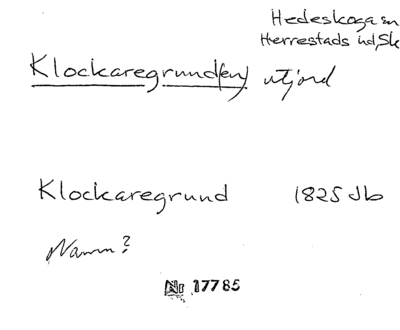 Hedeskoga sn
Herrestads hd, Sk
Klockaregrund(en) utjord
Klockaregrund 1825 Jb
Namn?
Nr 17785